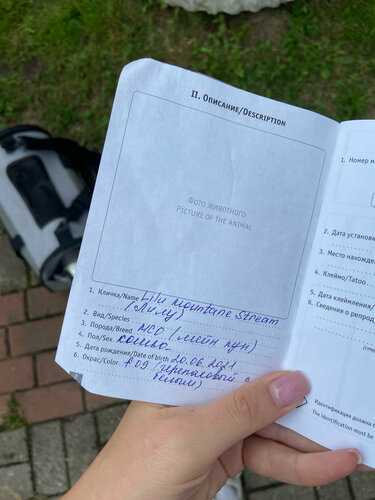 II. Описание/Description
Фото животного
Picture of the animal
1. Кличка/Name Lilu Mountane Stream
(Лилу)
2. Вид/Species
3. Порода/Breed MCO (мейн кун)
4. Пол/Sex кошка
5. Дата рождения/Date of birth 20.06.2021
6. Окрас/Color f 09 (черепаховый с
белым)
1. Номер м
2. Дата установ
3. Место нахожде
4. Клеймо/Tatoo
5. Дата клеймления/
6. Сведения о репрод
Идентификация должна б
The identification must be